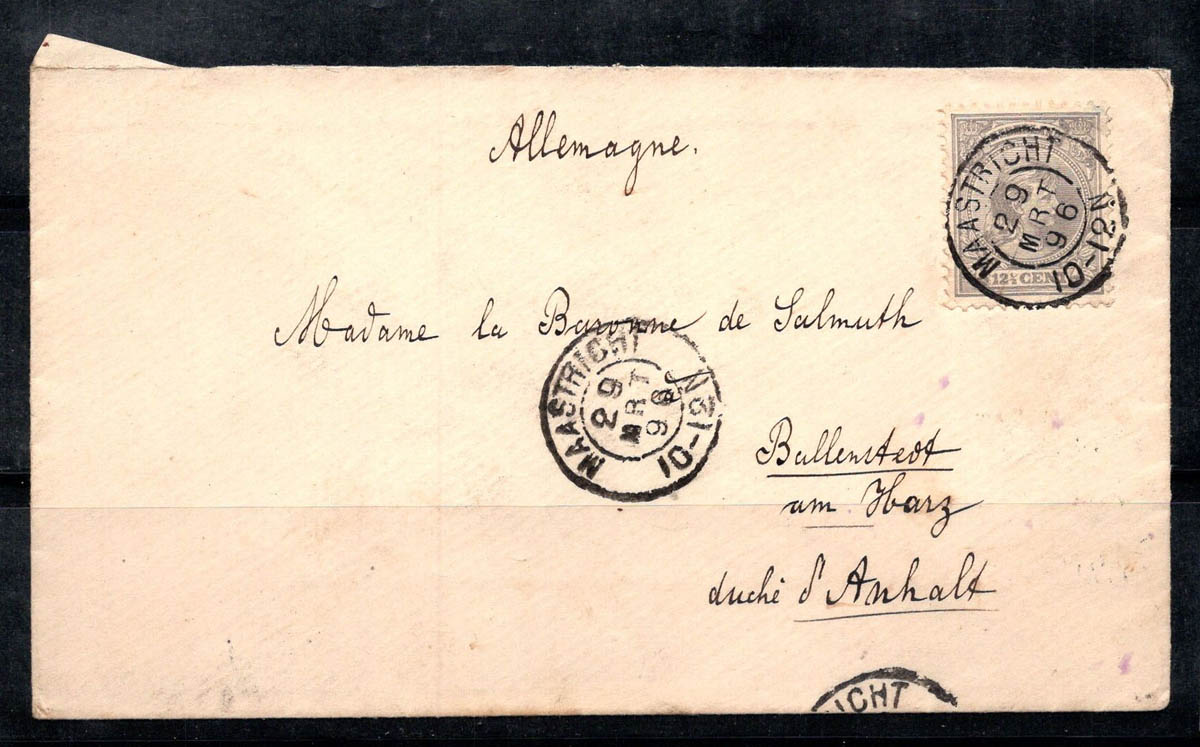 Allemagne.
MAASTRICHT
29
MRT
96
10-12N
12½ CEN
Madame la Baronne de Salmuth
MAASTRICHT
29
MRT
96
10-12N
Ballenstedt
am Harz
duché d'Anhalt
RICHT